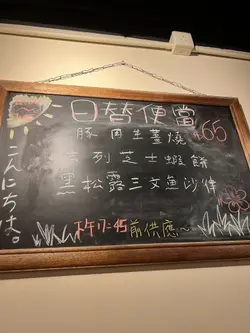 こんにちは。
日替便當
豚肉生薑燒 $65
吉列芝士蝦餅
黑松露三文魚沙律
於17:45前供應~